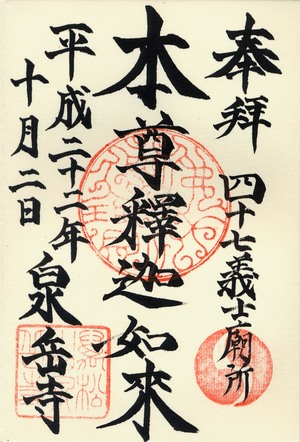 奉拝
四十七義士廟所
本尊釋迦如来
平成二十二年
十月二日
泉岳寺